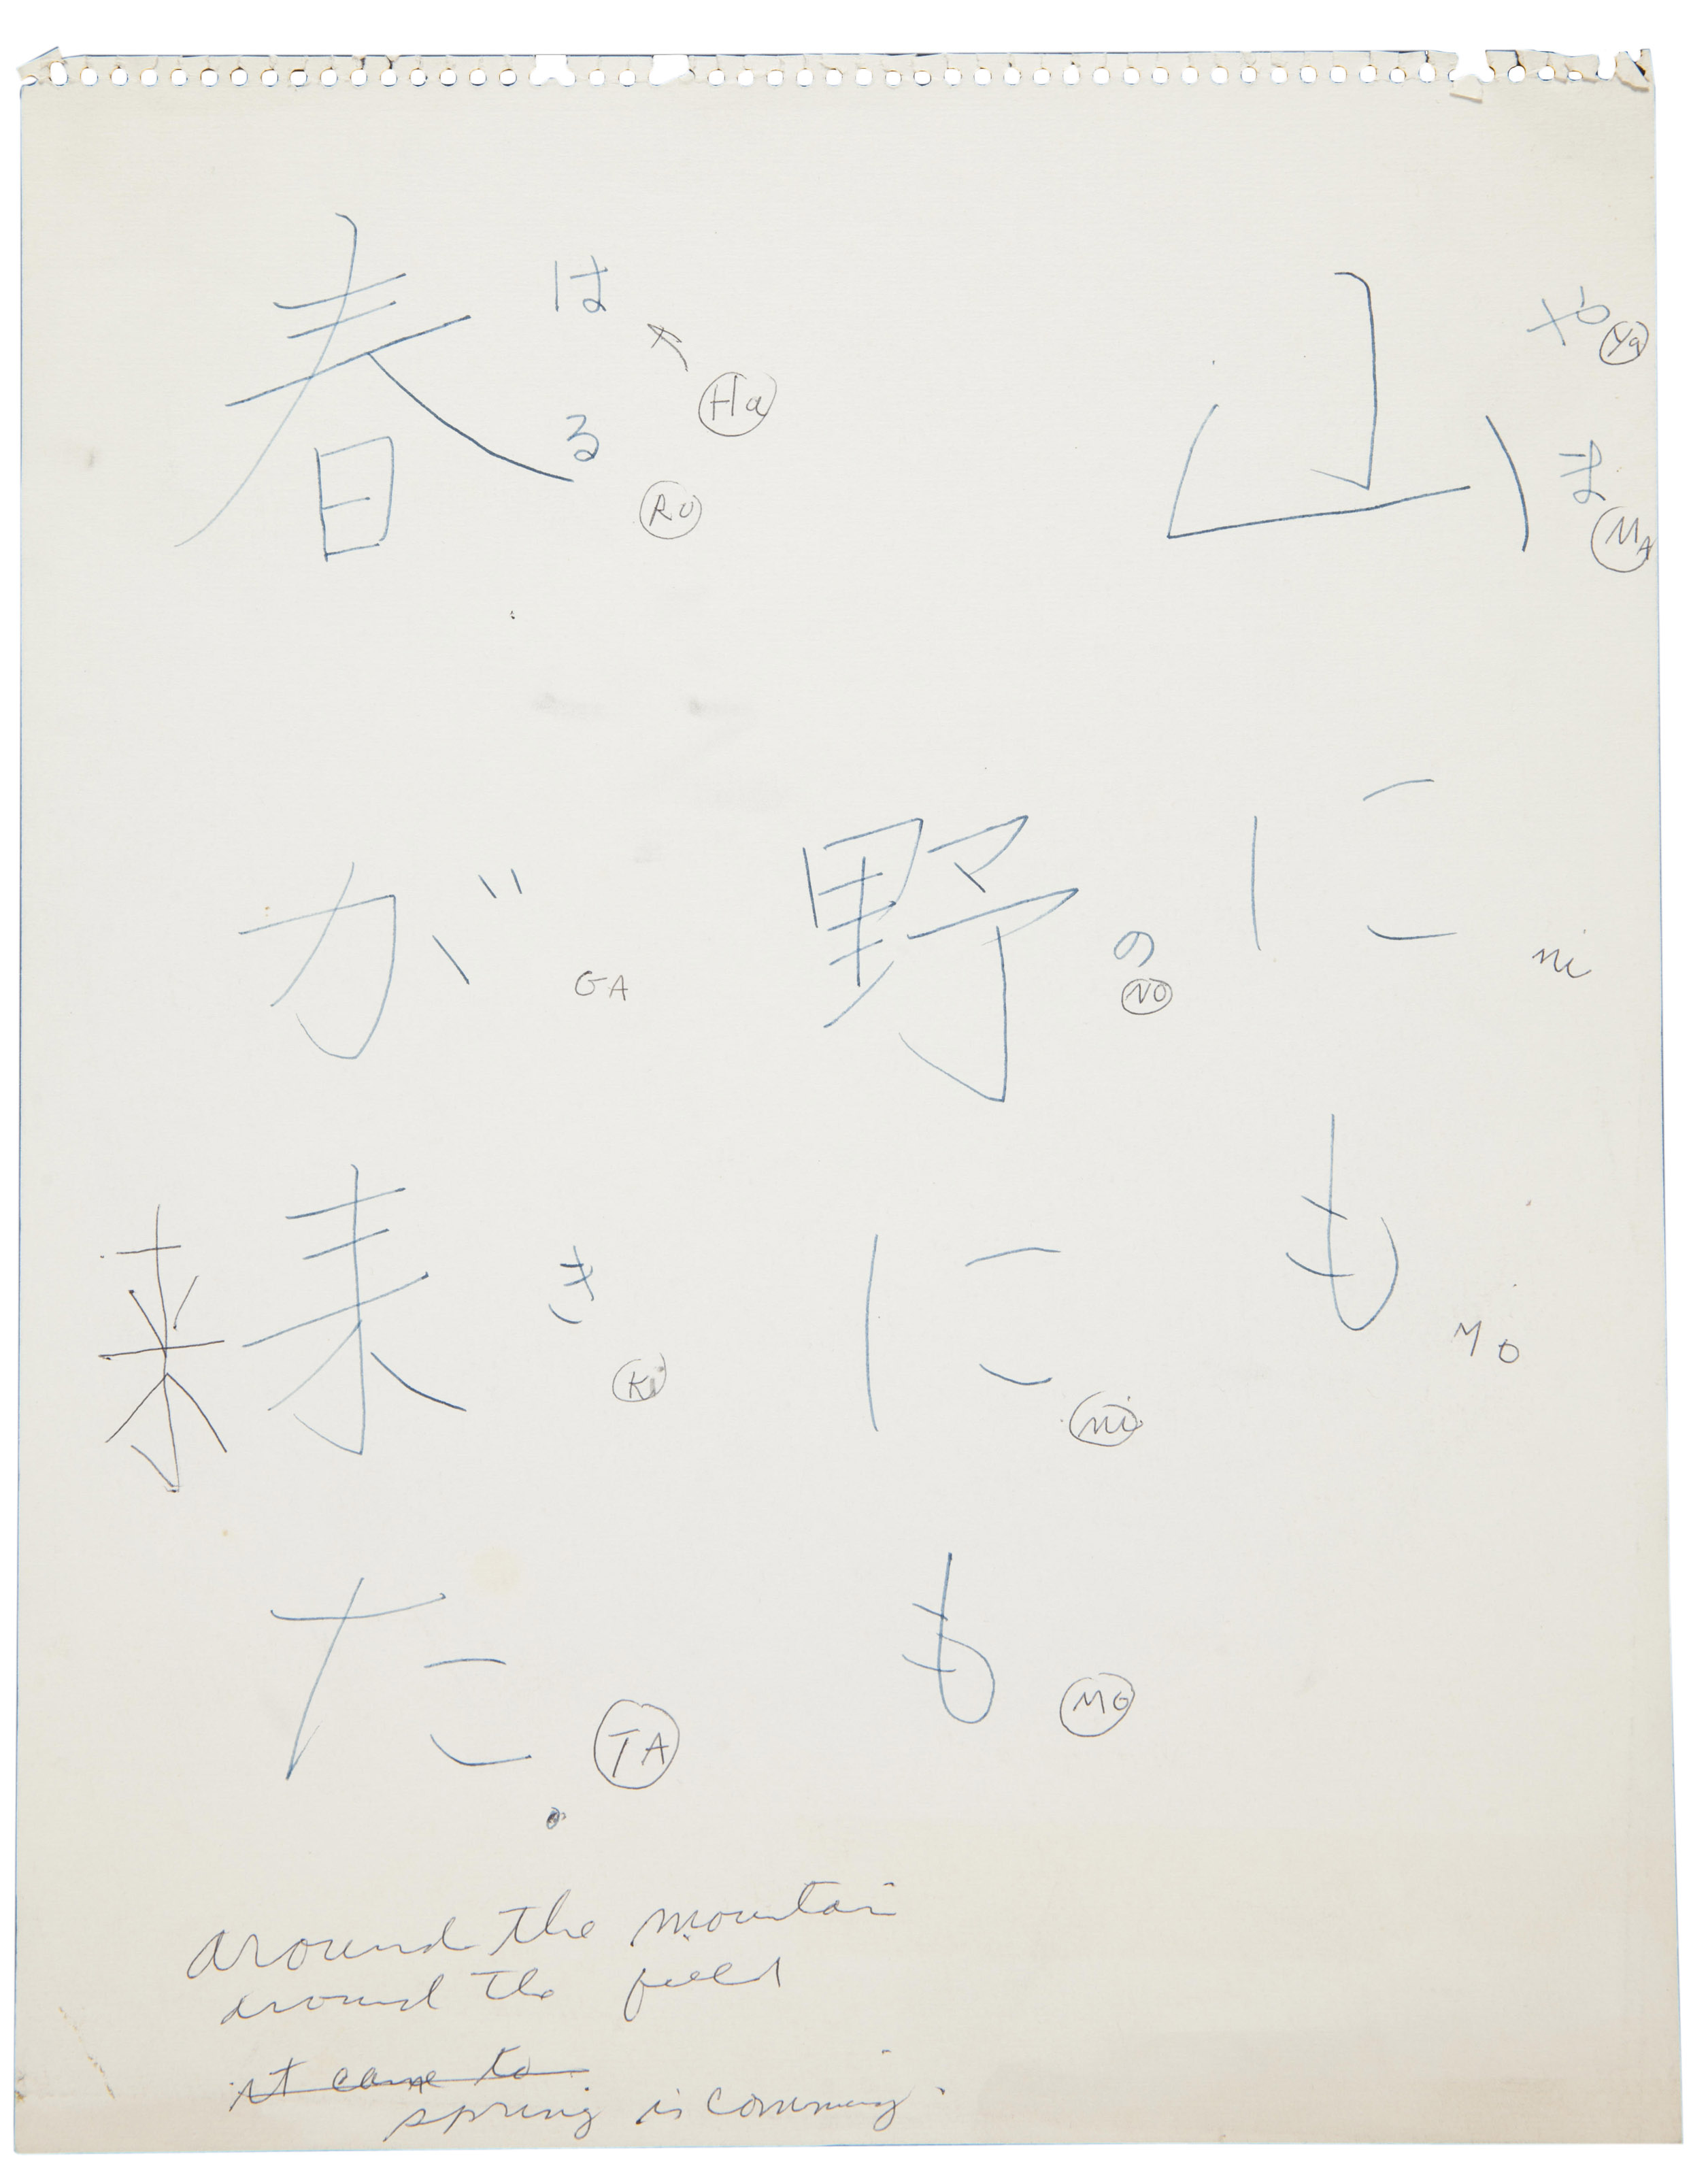 山にも
やま
Ya
MA
ni
MO
野にも
の
NO
ni
MO
春が来た。
はる
Ha
RU
GA
き
Ki
TA
来
around the mountain
around the field
it came to
spring is comming.